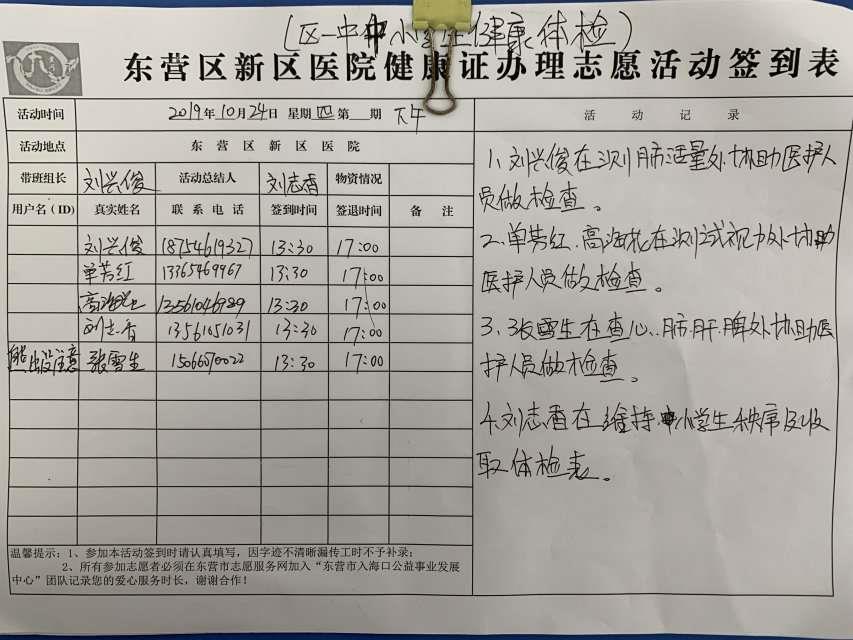 (区一中中小学生健康体检)
东营区新区医院健康证办理志愿活动签到表
活动时间 2019年10月24日 星期四第 期 下午
活动地点 东营区新区医院
带班组长 刘兴俊 活动总结人 刘志香 物资情况
用户名(ID) 真实姓名 联系电话 签到时间 签退时间 备注
刘兴俊 18754619327 13:30 17:00
单芳红 13365469967 13:30 17:00
高海 13561046989 13:30 17:00
刘志香 13561051031 13:30 17:00
熊出没注意 张雪生 15066070022 13:30 17:00
温馨提示:1、参加本活动签到时请认真填写,因字迹不清晰漏传工时不予补录;
2、所有参加志愿者必须在东营市志愿服务网加入“东营市入海口公益事业发展
中心”团队记录您的爱心服务时长,谢谢合作!
活动记录
1、刘兴俊在测肺活量处协助医护人
员做检查。
2、单芳红、高海 在测试视力处协助
医护人员做检查。
3、张雪生在查心、肺、肝、脾处协助医
护人员做检查。
4、刘志香在维持中小学生秩序及收
取体检表。